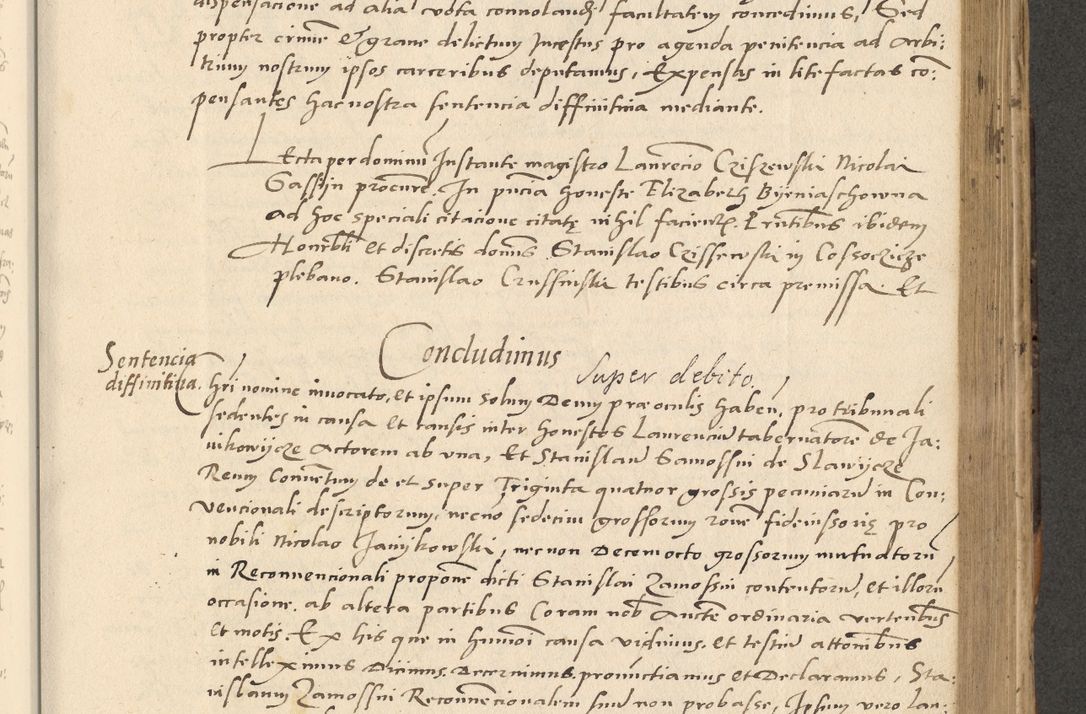 dispensacione ad alia vota convolandi facultatem concedimus, Sed
propter crime et grave delictum Incestus pro agenda penitencia ad Arbi:
trium nostrum ipsos carceribus deputamus, Expensis in lite factas co:
pensantes hac nostra sentencia diffinitiva mediante.
Lecta per dominu Instante magistro Laurencio Cziszewski Nicolai
Gassyn procure. In pncia honeste Elizabeth Byeniaschowna
ad hoc speciali citacione citatę nihil facien. Prntibus ibidem
Honrbli et discretis domis Stanislao Czissewski in Cossoczicze
plebano. Stanislao Crussinski testibus circa premissa. Et
Concludimus
Sentencia
diffinitiva.
Super debito.
Chri nomine invocato, et ipsum Solum Deum præ oculis haben, pro tribunali
sedentes in causa et causis inter honestos Laurenciu tabernatore de Ja:
nikowijcze Actorem ab una, Et Stanislau Samossni de Slawijcze
Reum Conventum de et super Triginta quatuor grossis pecuniaru in Con:
vencionali descriptorum, necno sedecim grossorum rone fideiussorię pro
nobili Nicolao Janijkowski, necnon Decem octo grossorum mutuatoru
in Reconvencionali propone dicti Stanislai Zamossni contentoru, et illoru
occasione. ab altera partibus Coram nob Aucte ordinaria vertentibus
et motis. Ex his que in humoi causa vidimus, et testiu attonibus
intelleximus Dicimus, Decernimus, pronunctiamus et Declaramus, Sta:
nislaum Zamossni Reconvencionalem suu non probasse, Ipsum vero Lau: